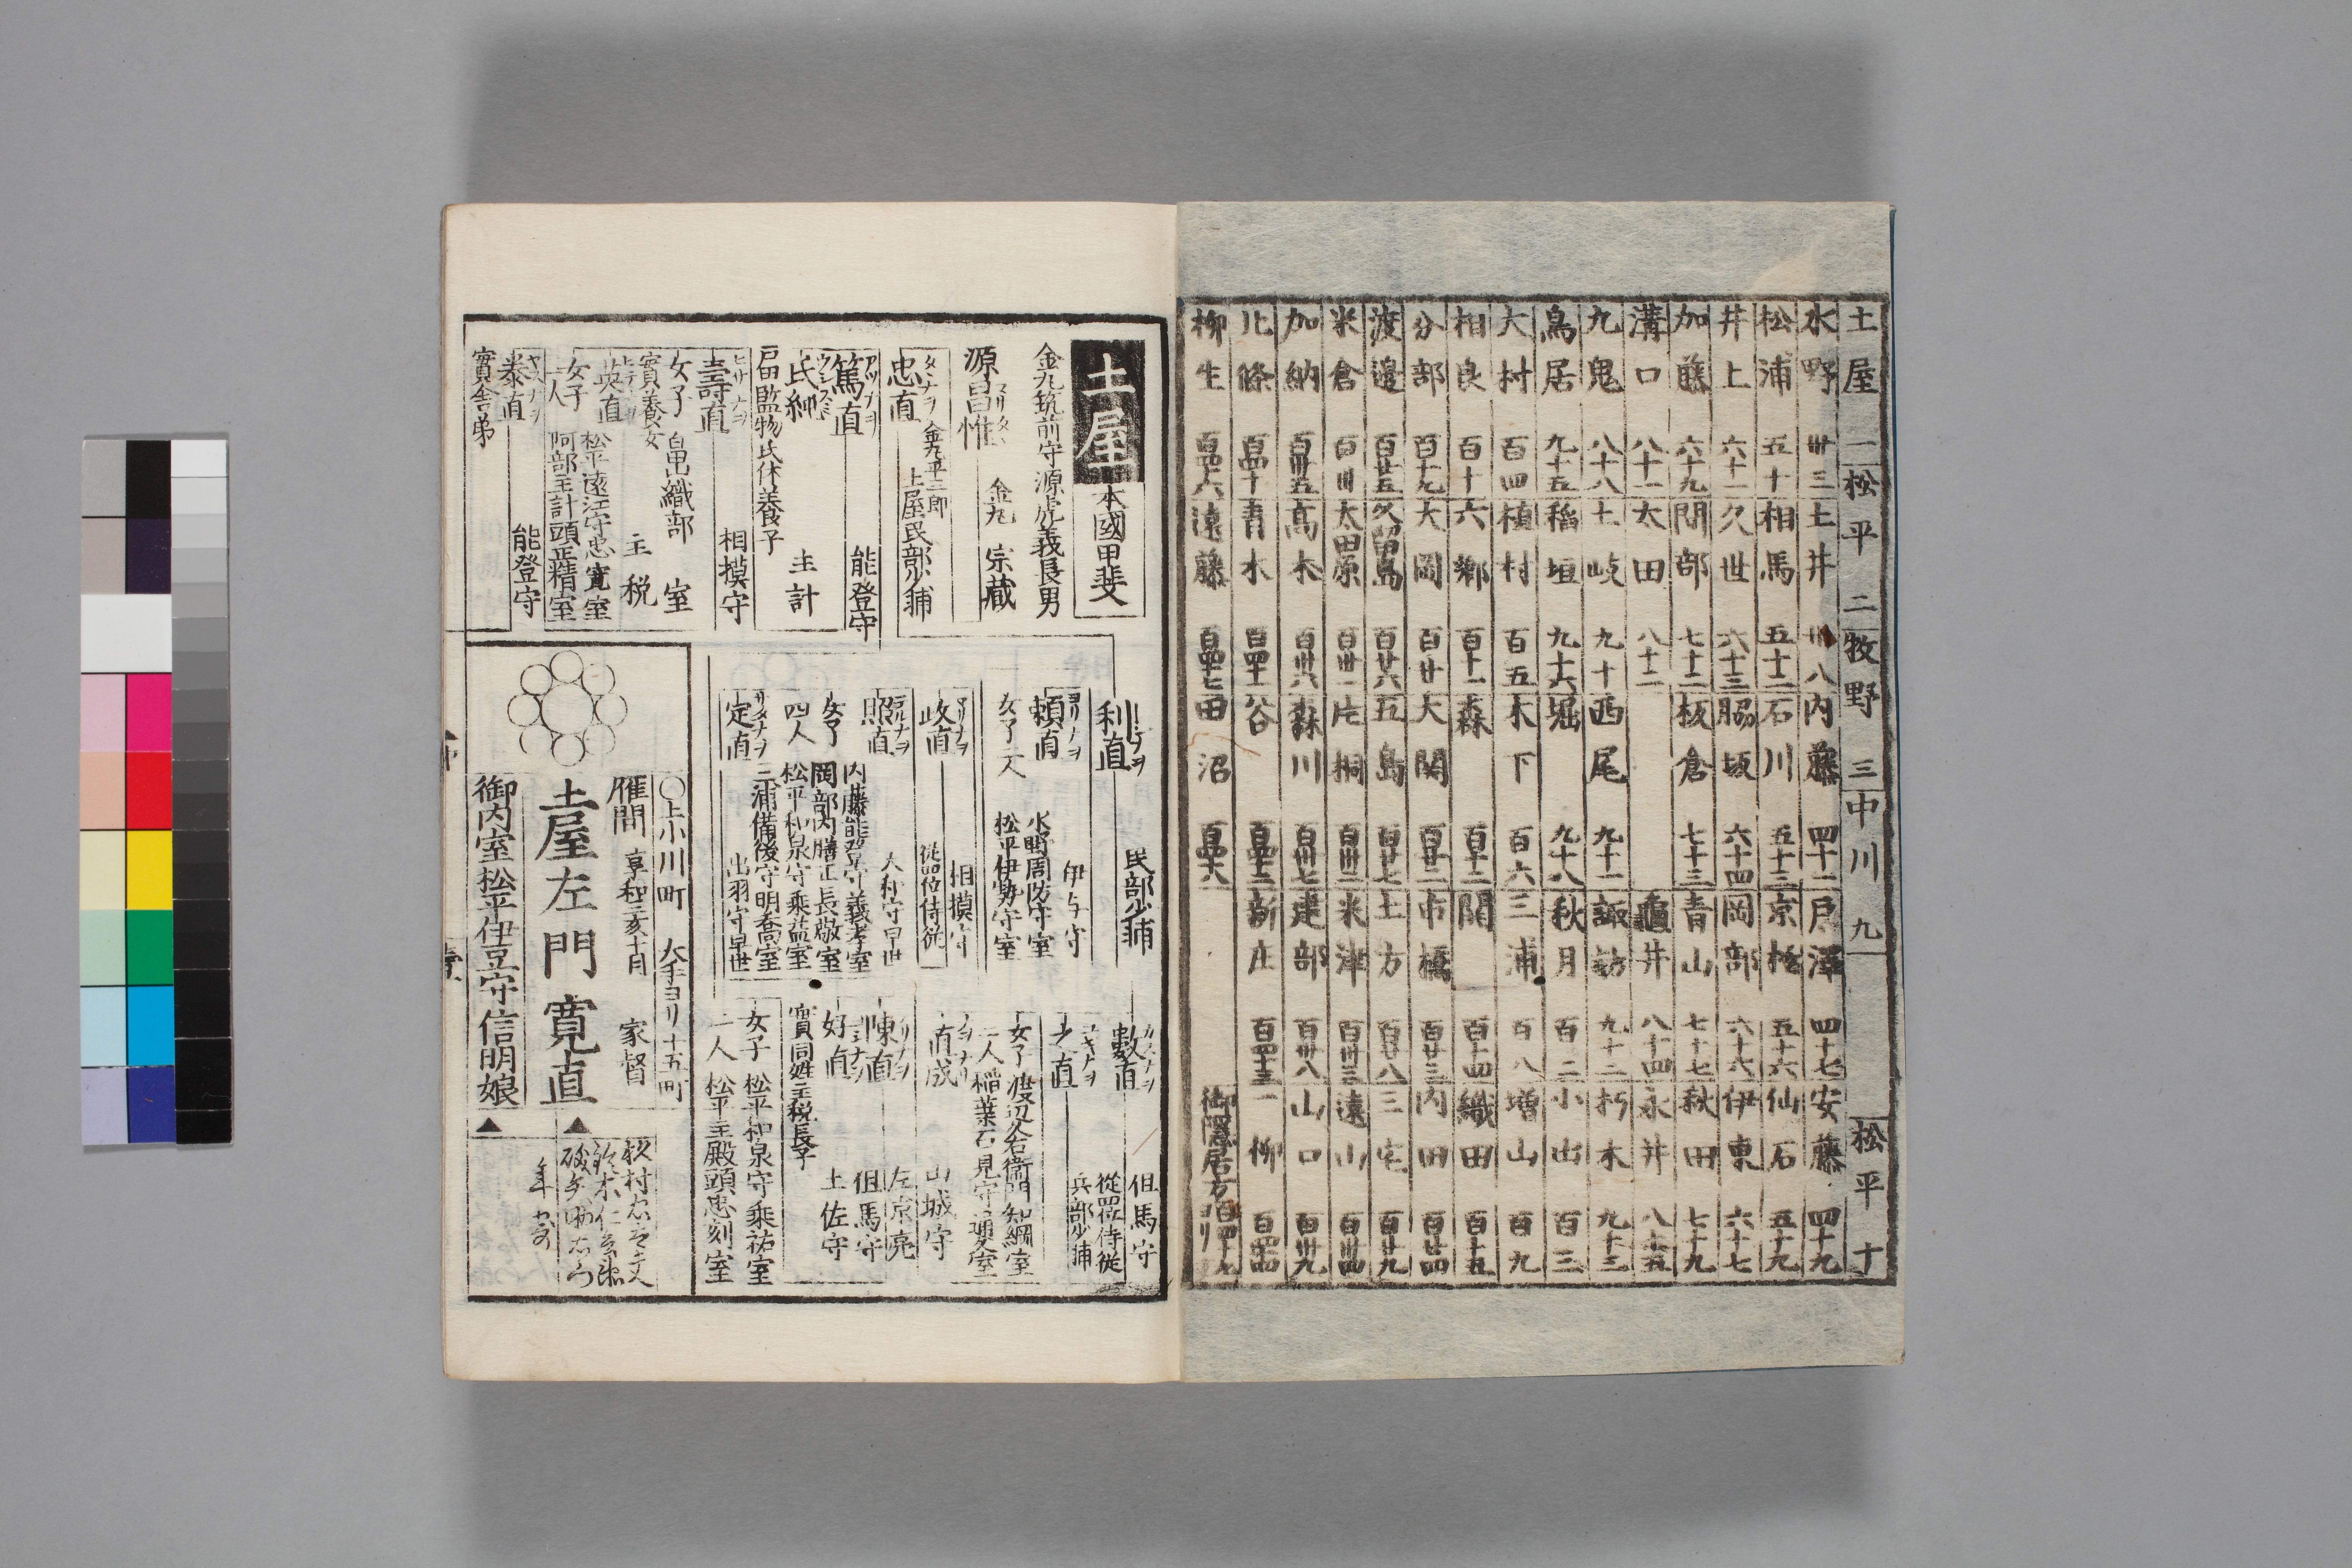 土屋 一 松平 二 牧野 三 中川 九 松平 十
水野 卅三 土井 卅八 内藤 四十一 戸澤 四十七 安藤 四十九
松浦 五十 相馬 五十二 石川 五十三 京極 五十六 仙石 五十九
井上 六十一 久世 六十三 脇坂 六十四 岡部 六十六 伊東 六十七
加藤 六十九 間部 七十二 板倉 七十三 青山 七十七 秋田 七十九
溝口 八十一 太田 八十二 龜井 八十四 永井 八十五
九鬼 八十八 土岐 九十 西尾 九十一 諏訪 九十二 朽木 九十三
鳥居 九十五 稲垣 九十六 堀 九十八 秋月 百二 小出 百三
大村 百四 植村 百五 木下 百六 三浦 百八 増山 百九
相良 百十 六郷 百十一 森 百十二 関 百十四 織田 百十五
分部 百十九 大岡 百廿 大関 百廿二 市橋 百廿三 内田 百廿四
渡邉 百廿五 久留島 百廿六 五島 百廿七 土方 百廿八 三宅 百廿九
米倉 百卅 太田原 百卅一 片桐 百卅二 米津 百卅三 遠山 百卅四
加納 百卅五 高木 百卅六 森川 百卅七 建部 百卅八 山口 百卅九
北條 百四十 青木 百四十一 谷 百四十二 新庄 百四十三 一柳 百四十四
柳生 百四十六 遠藤 百四十七 田沼 百四十八 御隠居方 百四十九ヨリ
土屋 本國甲斐
金丸筑前守源虎義長男
源昌惟 金丸 宗藏
忠直 タヾナヲ 金丸平三郎 土屋民部少輔
篤直 アツナヲ 能登守
氏紳 主計
戸田監物氏休養子
壽直 ヒサナヲ 相摸守
女子 畠山織部 室
實養女 主税
英直 ヒデナヲ
女子 松平遠江守忠寛室
二人 阿部主計頭正精室
泰直 ヤスナヲ 能登守
實舎弟
利直 民部少輔
頼直 ヨリナヲ 伊与守
水野周防守室
女子二人 松平伊勢守室
政直 マサナヲ 相摸守
從四位侍從
照直 テルナヲ 大和守早世
内藤能登守義孝室
女子 岡部内膳正長敬室
四人 松平和泉守乘益室
三浦備後守明喬室
定直 サダナヲ 出羽守早世
數直 カズナヲ 但馬守
從四位侍從
之直 ユキナヲ 兵部少輔
女子 渡辺久右衛門知綱室
二人 稲葉石見守通室
直成 山城守
陳直 ノリナヲ 左京亮
但馬守
好直 ヨシナヲ 土佐守
實同姓主税長子
女子 松平和泉守乘祐室
二人 松平主殿頭忠刻室
〇上小川町 大手ヨリ十五町
雁間 享和三亥十月 家督
土屋左門寛直
御内室松平伊豆守信明娘